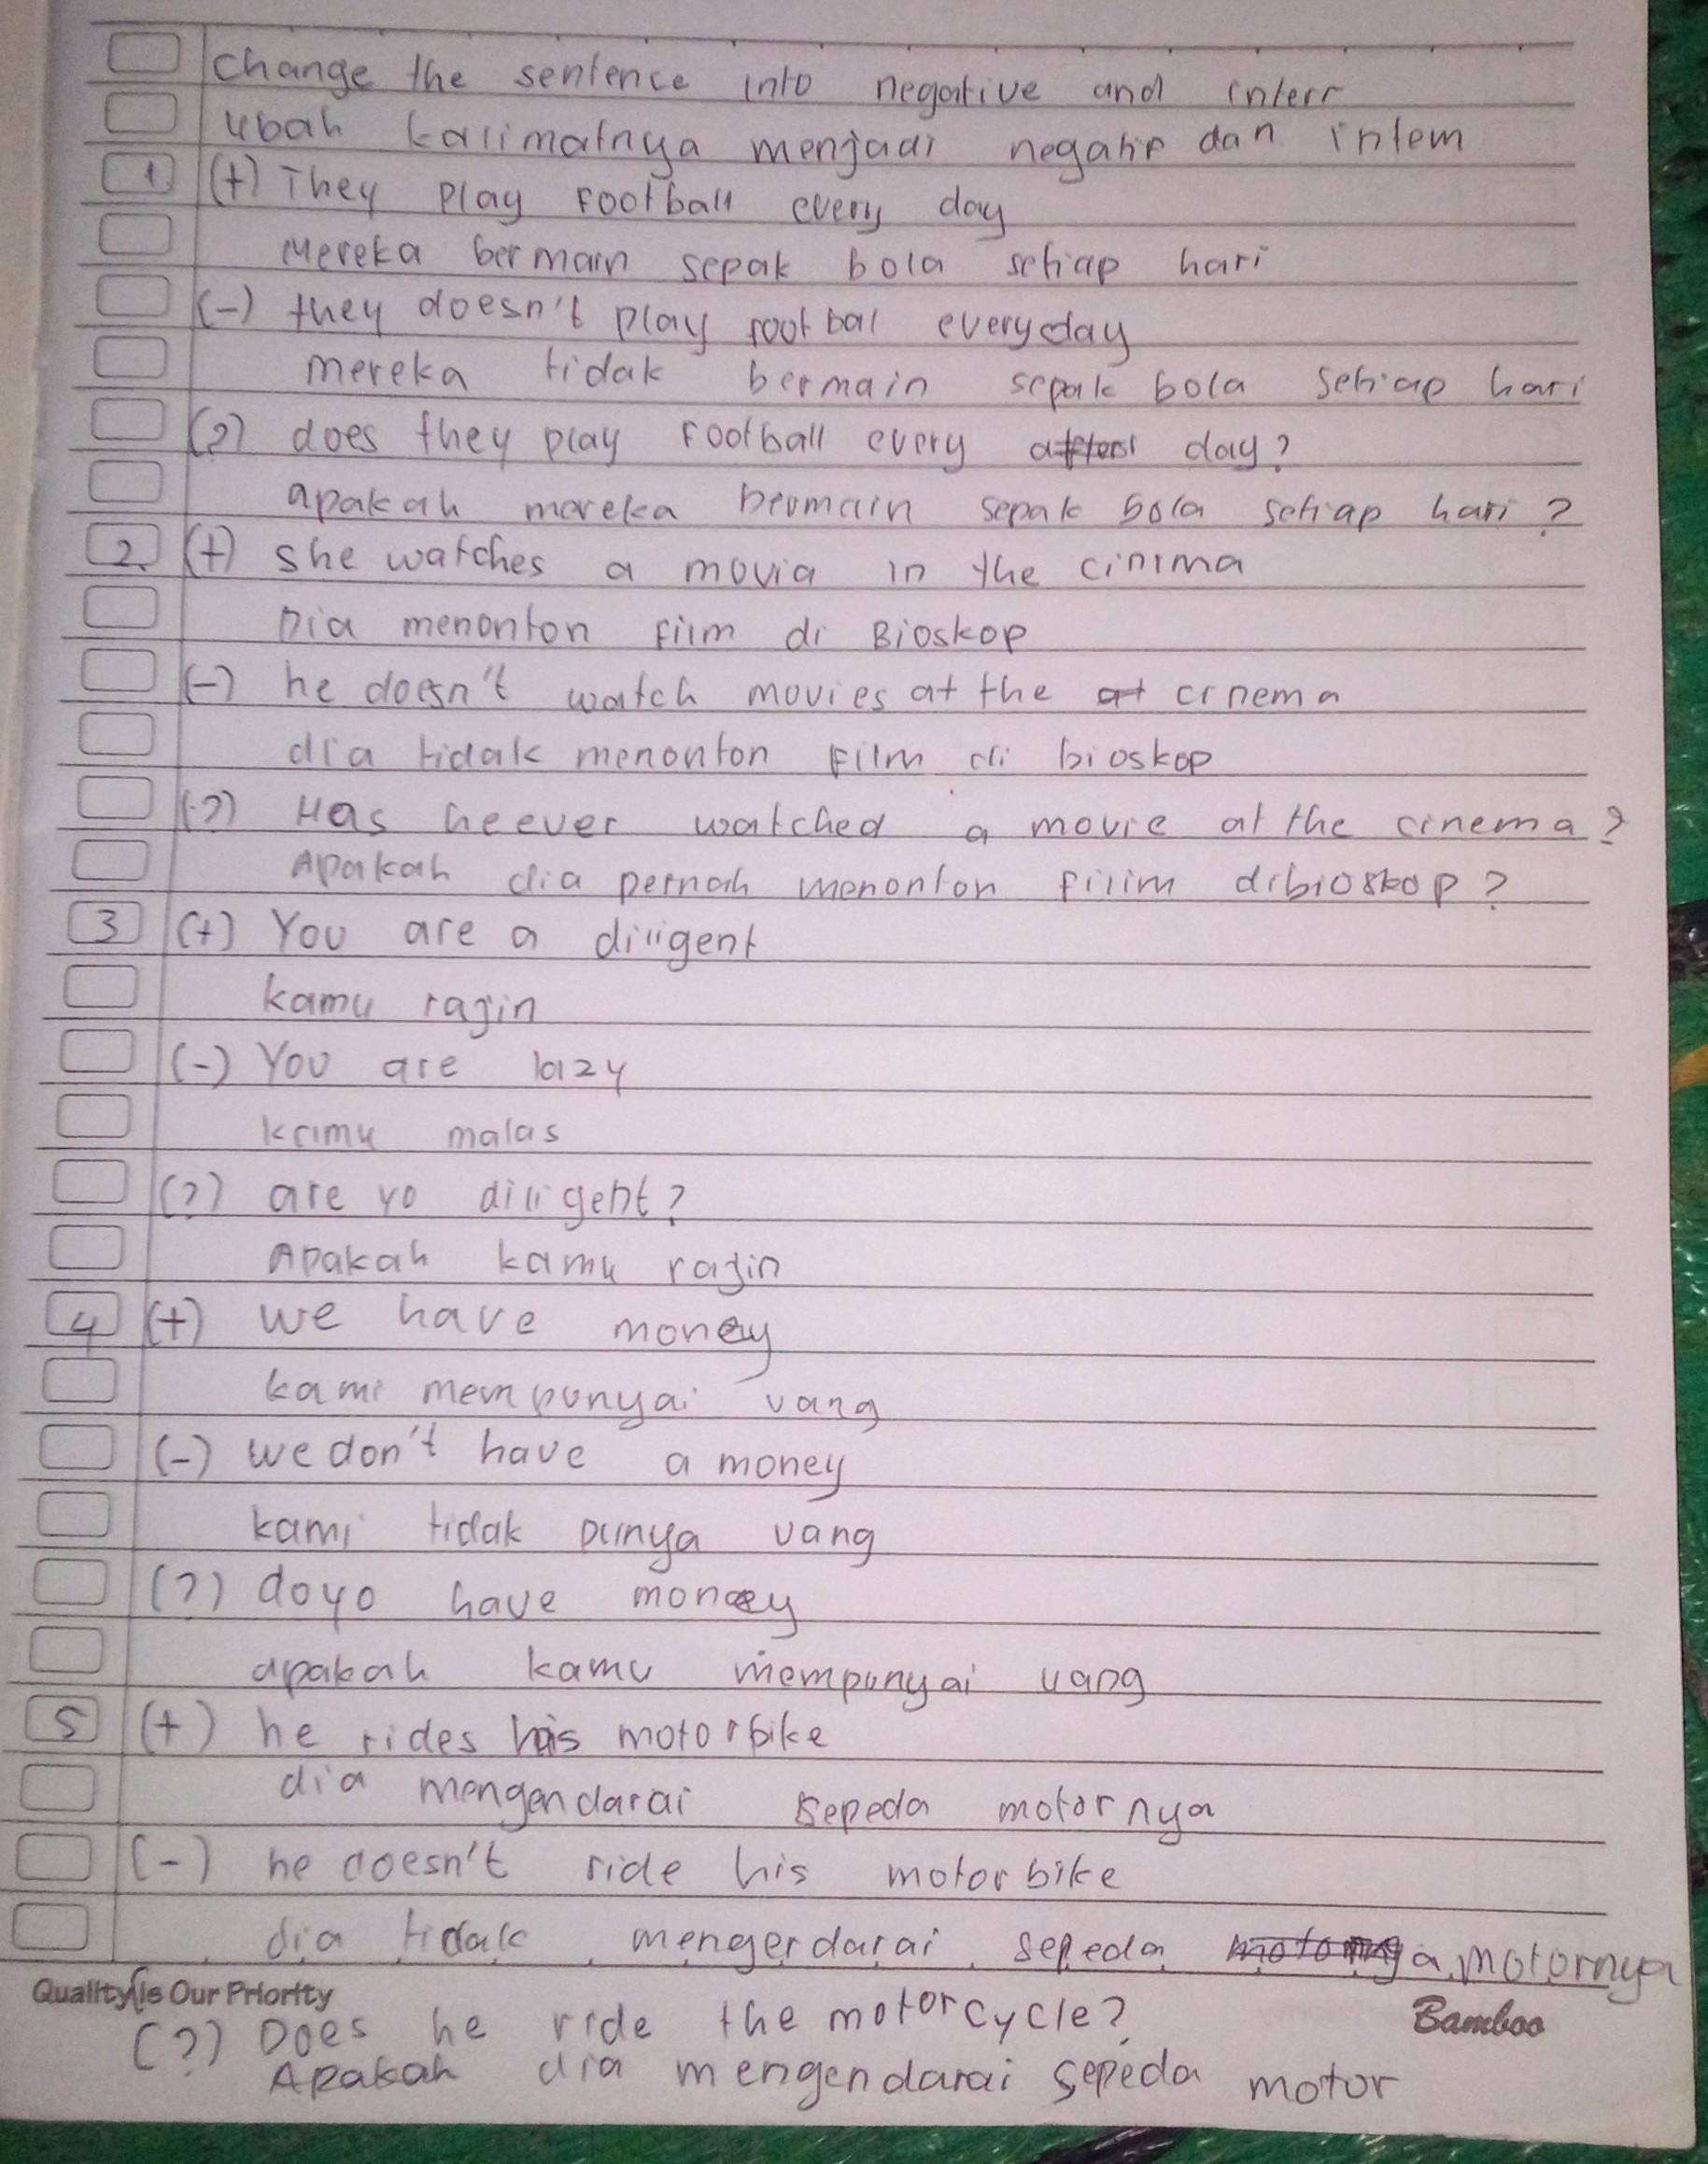 Change the sentence into negative and interr
Ubah kalimatnya menjadi negatif dan interr
1. (+) They play football every day
Mereka bermain sepak bola setiap hari
(-) they doesn't play footbal everyday
mereka tidak bermain sepak bola setiap hari
(?) does they play football every day?
apakah mereka bermain sepak bola setiap hari?
2. (+) she watches a movia in the cinima
Dia menonton film di Bioskop
(-) he doesn't watch movies at the cinema
dia tidak menonton Film di bioskop
(?) Has heever watched a movie at the cinema?
Apakah dia pernah menonton filim dibioskop?
3 (+) You are a diligent
kamu rajin
(-) You are lazy
kamu malas
(?) are yo diligent?
Apakah kamu rajin
4 (+) we have money
kami mempunyai uang
(-) we don't have a money
kami tidak punya uang
(?) doyo have money
apakah kamu mempunyai uang
5 (+) he rides his motorbike
dia mengendarai sepeda motornya
(-) he doesn't ride his motorbike
dia tidak mengerdarai sepeda motornya
Quality is Our Priority
Bamboo
(?) Does he ride the motorcycle?
Apakah dia mengendarai sepeda motor